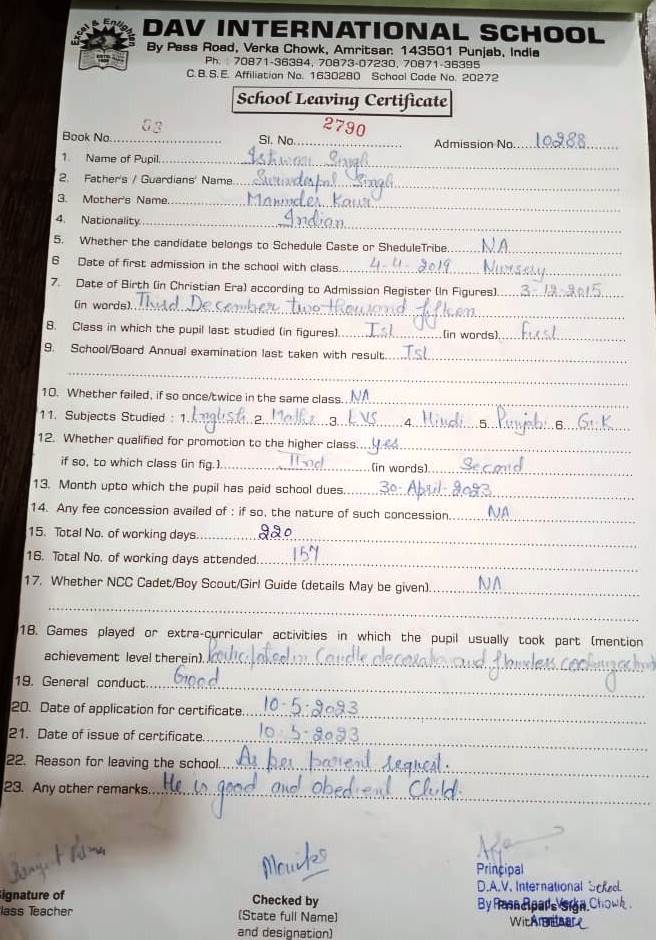 Excel & Enlighten
DAV INTERNATIONAL SCHOOL
By Pass Road, Verka Chowk, Amritsar. 143501 Punjab, India
Ph. : 70871-36394, 70873-07230, 70871-36395
C.B.S.E. Affiliation No. 1630280 School Code No. 20272
School Leaving Certificate
Book No. 53 Sl. No. 2790 Admission No. 10288
1. Name of Pupil Singh
2. Father's / Guardians' Name Surinderpal Singh
3. Mother's Name Maninder Kaur
4. Nationality Indian
5. Whether the candidate belongs to Schedule Caste or SheduleTribe NA
6 Date of first admission in the school with class 4-4-2019 Nursery
7. Date of Birth (in Christian Era) according to Admission Register (in Figures) 3-12-2015
(in words) Third December two thousand fifteen
8. Class in which the pupil last studied (in figures) Ist (in words) First
9. School/Board Annual examination last taken with result Ist
10. Whether failed, if so once/twice in the same class NA
11. Subjects Studied : 1. English 2. Maths 3. EVS 4. Hindi 5. Punjabi 6. G.K
12. Whether qualified for promotion to the higher class yes
if so, to which class (in fig.) IInd (in words) Second
13. Month upto which the pupil has paid school dues 30-April-2023
14. Any fee concession availed of : if so, the nature of such concession NA
15. Total No. of working days 220
16. Total No. of working days attended 157
17. Whether NCC Cadet/Boy Scout/Girl Guide (details May be given) NA
18. Games played or extra-curricular activities in which the pupil usually took part (mention
achievement level therein) Participated in Candle decoration and flameless cooking activity
19. General conduct Good
20. Date of application for certificate 10-5-2023
21. Date of issue of certificate 10-5-2023
22. Reason for leaving the school As per parent request.
23. Any other remarks He is good and obedient Child.
Signature of
Class Teacher
Checked by
(State full Name)
and designation)
Principal
D.A.V. International School
By Pass Road, Verka Chowk.
Principal's Sign.
Amritsar